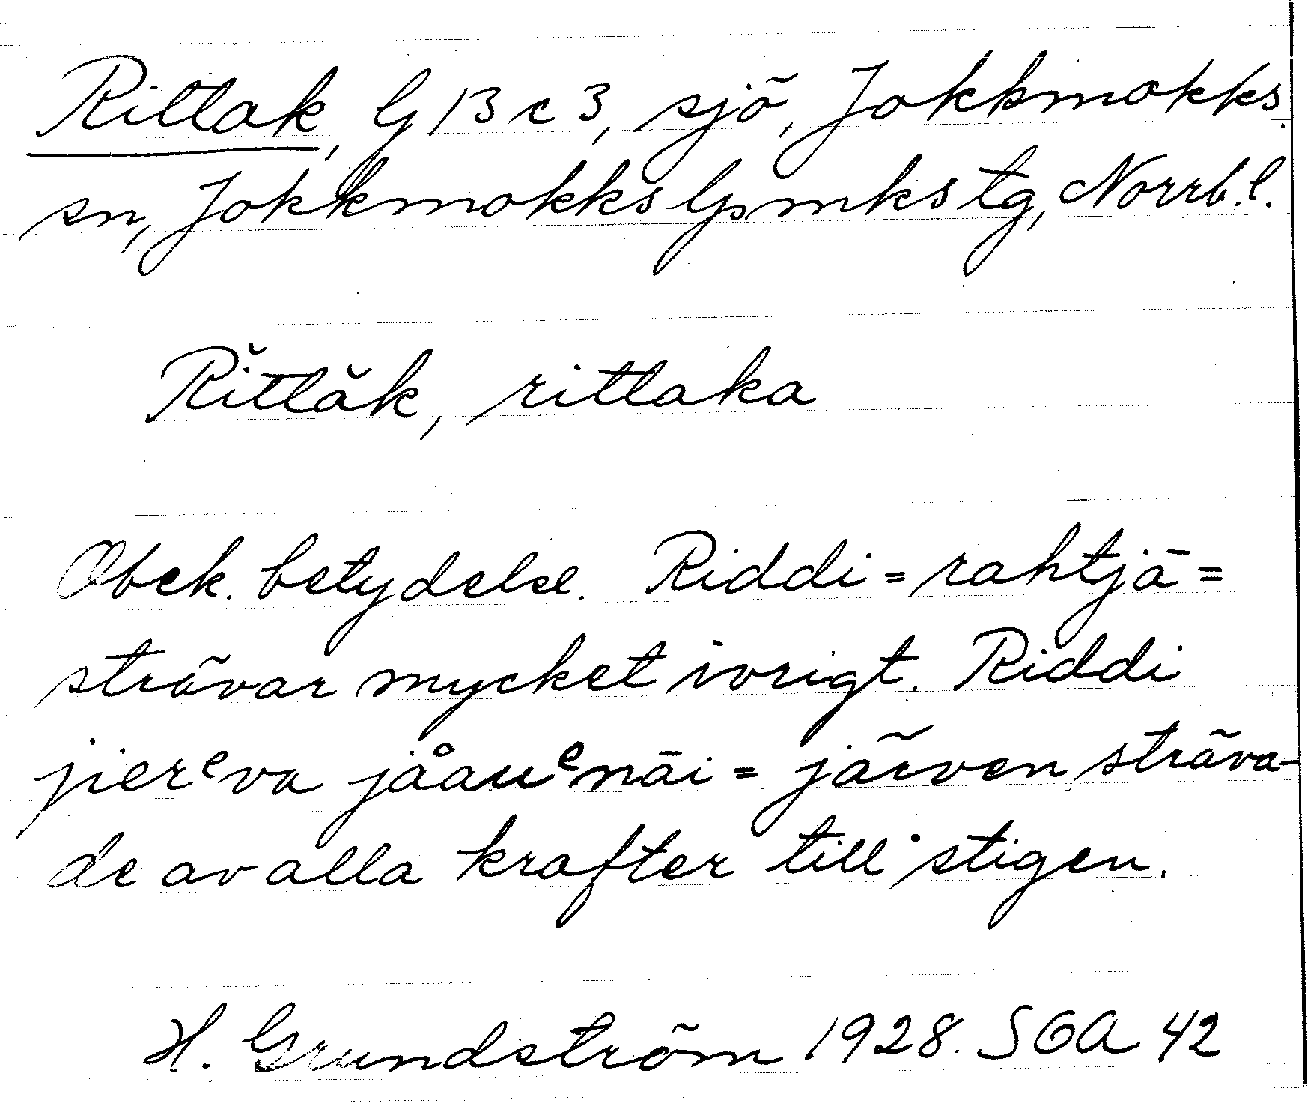 Ritlak, G 13 c 3, sjö, Jokkmokks
sn, Jokkmokks lpmks tg, Norrb. l.
Rĭtlăk, ritlaka
Obek. betydelse. Riddi = rahtjā =
strävar mycket ivrigt. Riddi
jierᵉva jåauᵉnäi = järven sträva-
de av alla krafter till stigen.
H. Grundström 1928. SOA 42